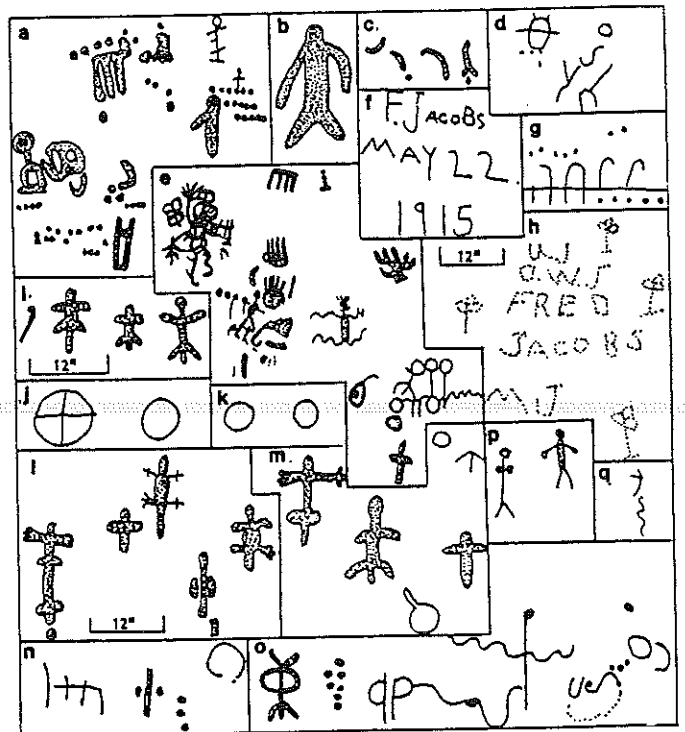 a
b
c.
d
e
f
F. JACOBS
MAY 22.
1915
g
12"
h
W J
O.W.S
FRED
JACOBS
M J
i.
12"
j
k
l
12"
m.
n
o
p
q